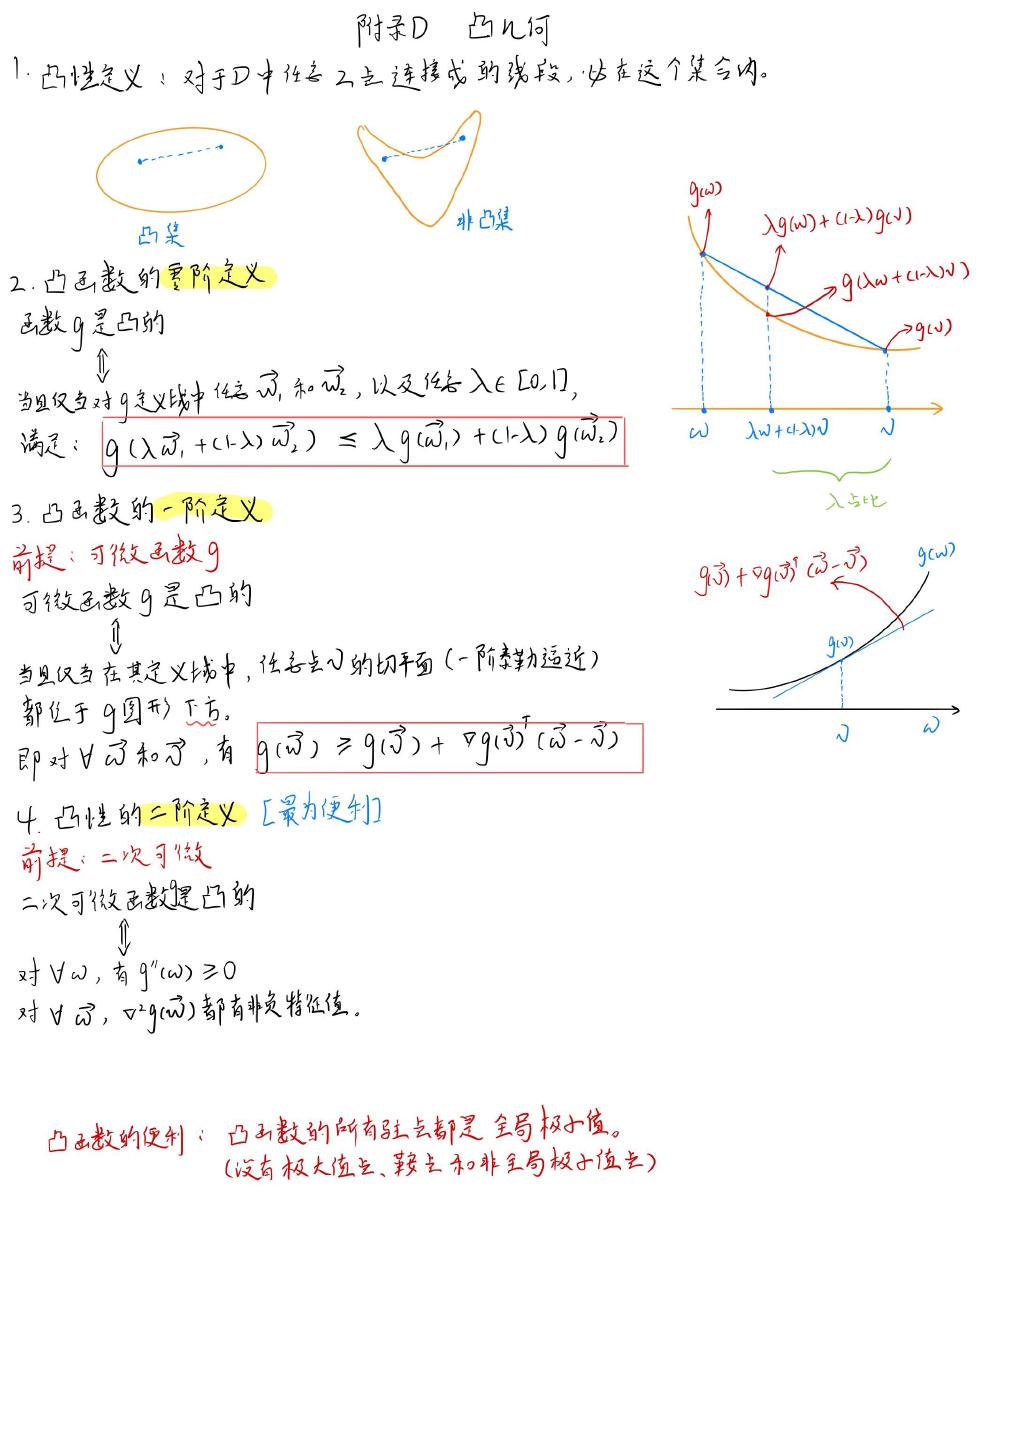 附录D 凸几何
1. 凸性定义：对于D中任意2点连接成的线段，必在这个集合内。
凸集
非凸集
2. 凸函数的零阶定义
函数g是凸的
⇕
当且仅当对g定义域中任意w⃗₁和w⃗₂，以及任意λ∈[0,1]，
满足：g(λw⃗₁+(1-λ)w⃗₂) ≤ λg(w⃗₁)+(1-λ)g(w⃗₂)
g(w)
λg(w)+(1-λ)g(v)
g(λw+(1-λ)v)
g(v)
w λw+(1-λ)v v
λ占比
3. 凸函数的一阶定义
前提：可微函数g
可微函数g是凸的
⇕
当且仅当在其定义域中，任意点v的切平面（一阶泰勒逼近）
都位于g图形下方。
即对∀w⃗和v⃗，有 g(w⃗) ≥ g(v⃗)+∇g(v⃗)ᵀ(w⃗-v⃗)
g(v⃗)+∇g(v⃗)ᵀ(w⃗-v⃗)
g(w)
g(v)
v w
4. 凸性的二阶定义 [最为便利]
前提：二次可微
二次可微函数g是凸的
⇕
对∀w，有g''(w)≥0
对∀w⃗，∇²g(w⃗)都有非负特征值。
凸函数的便利：凸函数的所有驻点都是全局极小值。
（没有极大值点、鞍点和非全局极小值点）